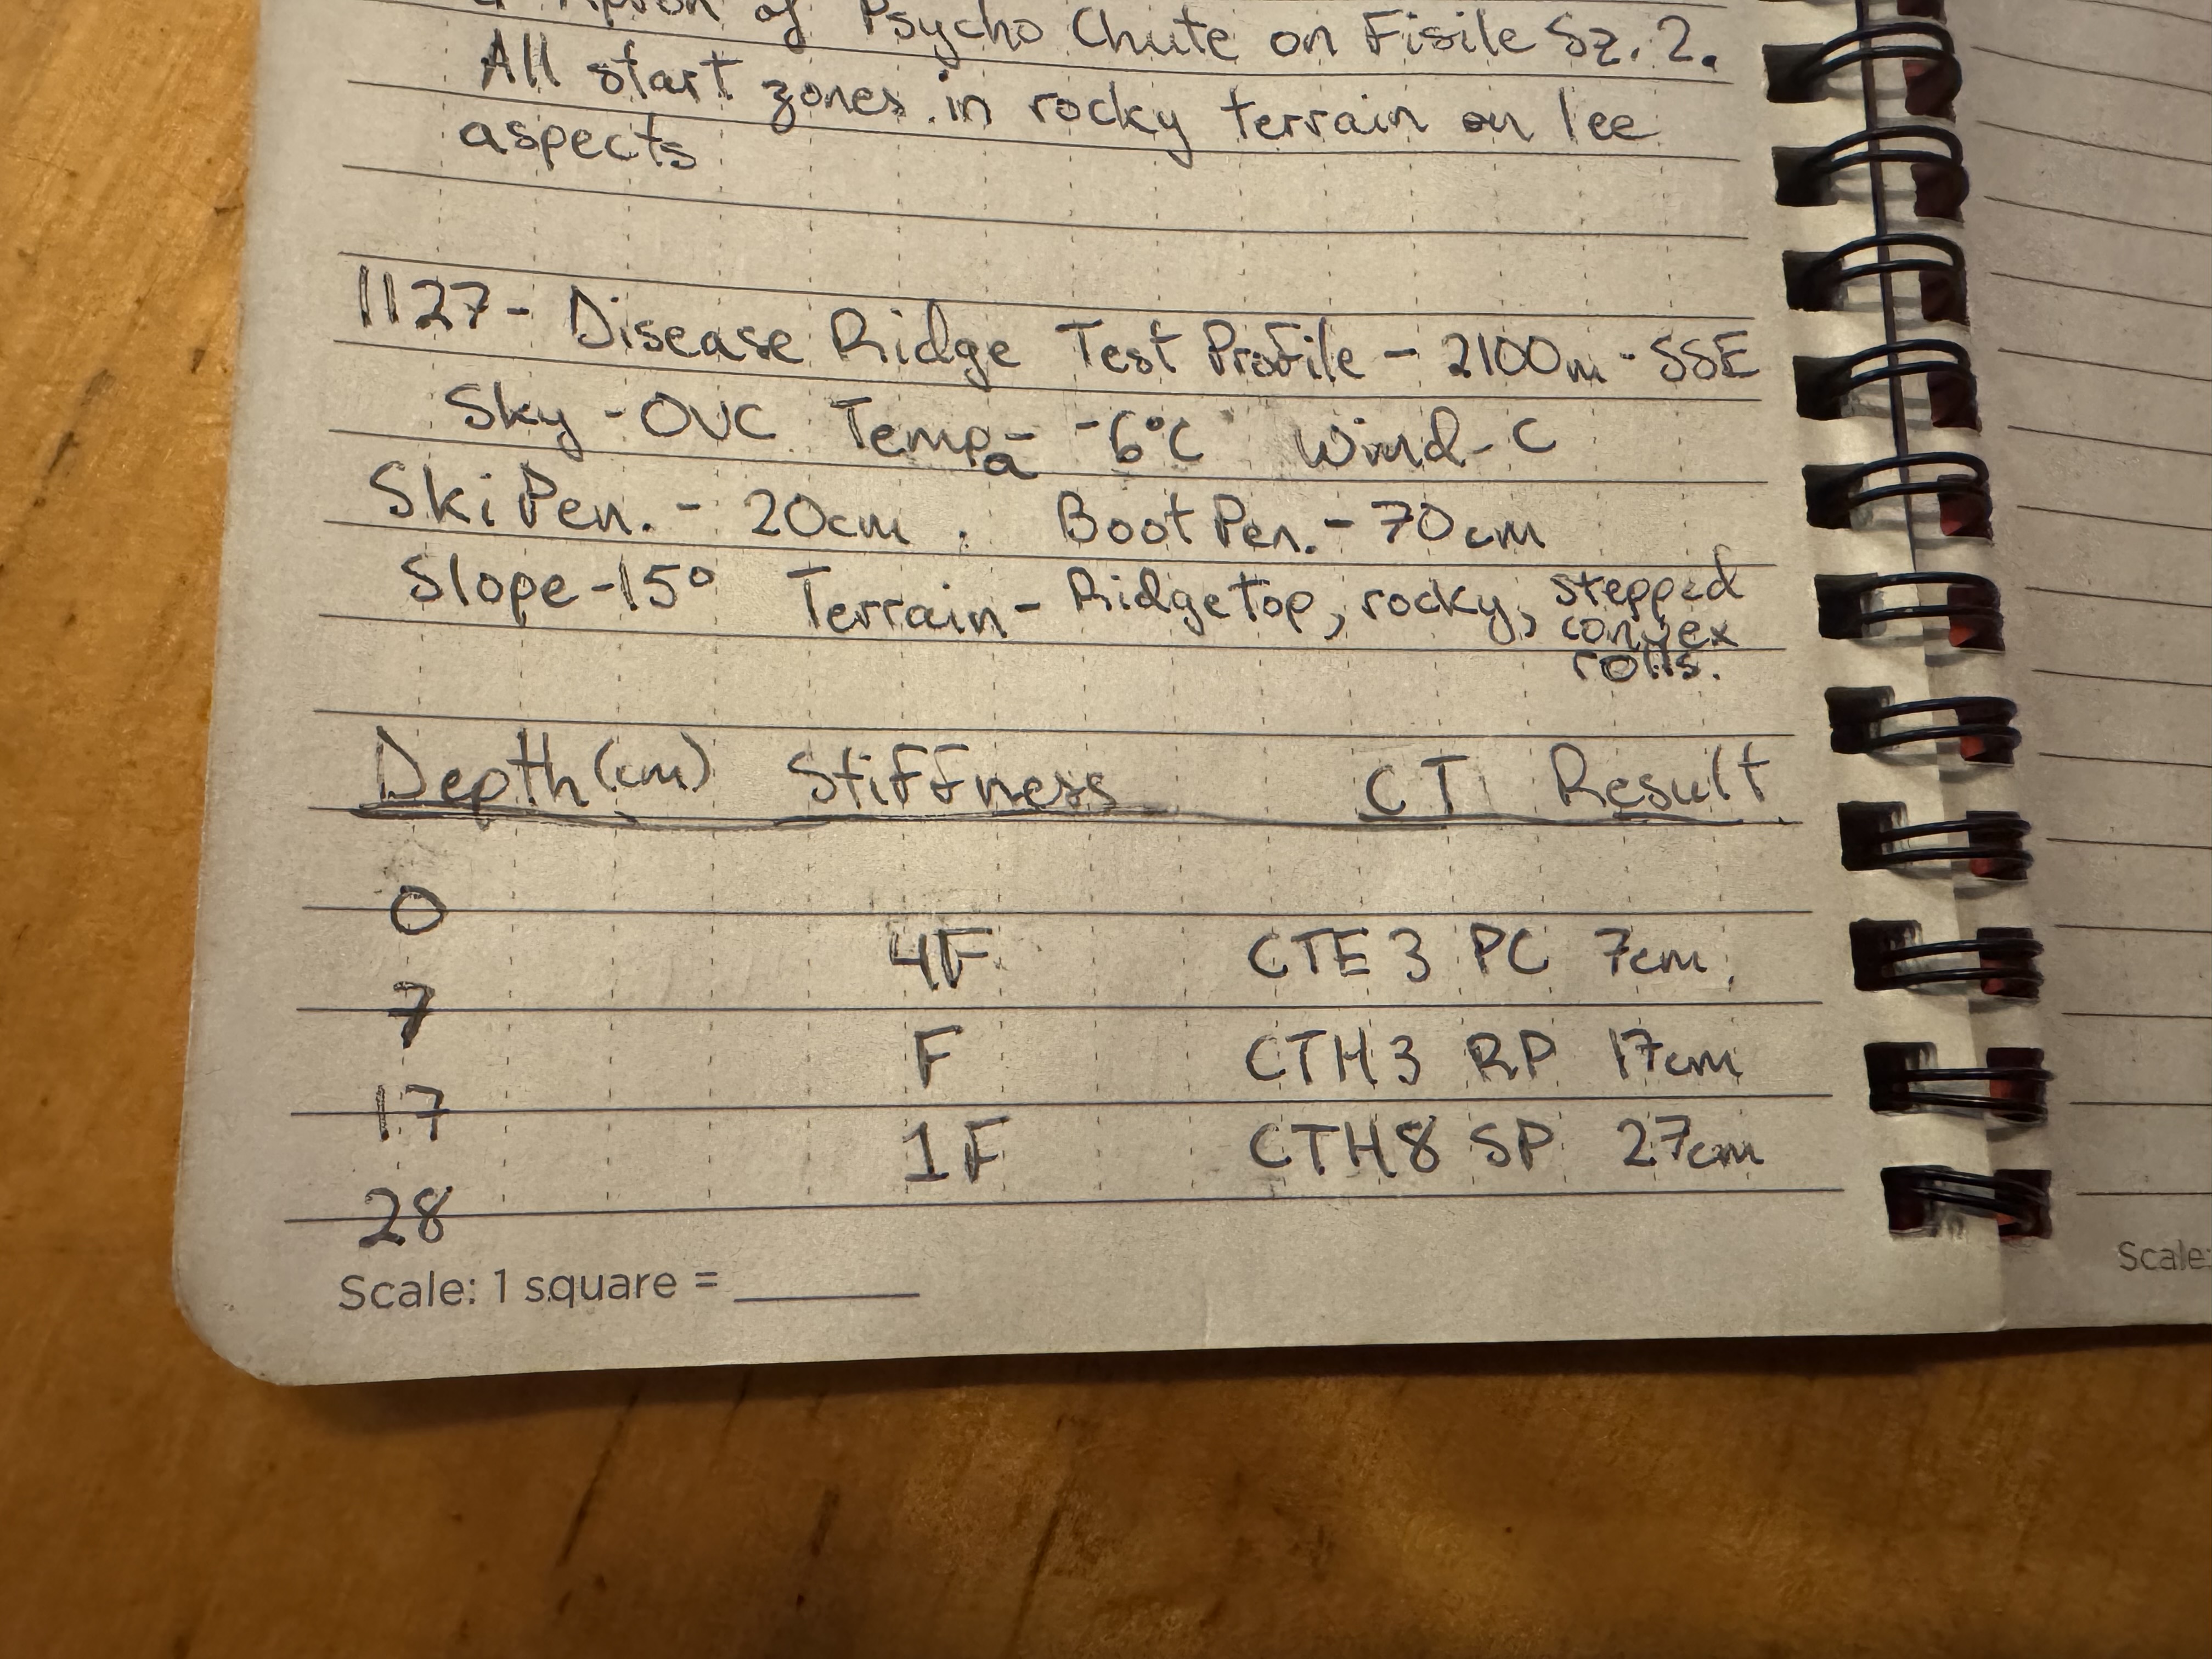 Apron of Psycho Chute on Fisile Sz. 2.
All start zones in rocky terrain on lee
aspects
1127 - Disease Ridge Test Profile - 2100m - SSE
Sky - OVC Tempa - -6°C Wind - C
Ski Pen. - 20cm. Boot Pen. - 70cm
Slope - 15° Terrain - Ridge Top, rocky, stepped
convex
rolls.
Depth (cm) Stiffness CT Result
0
4F CTE3 PC 7cm
7
F CTH3 RP 17cm
17
1F CTH8 SP 27cm
28
Scale: 1 square = ______
Scale: